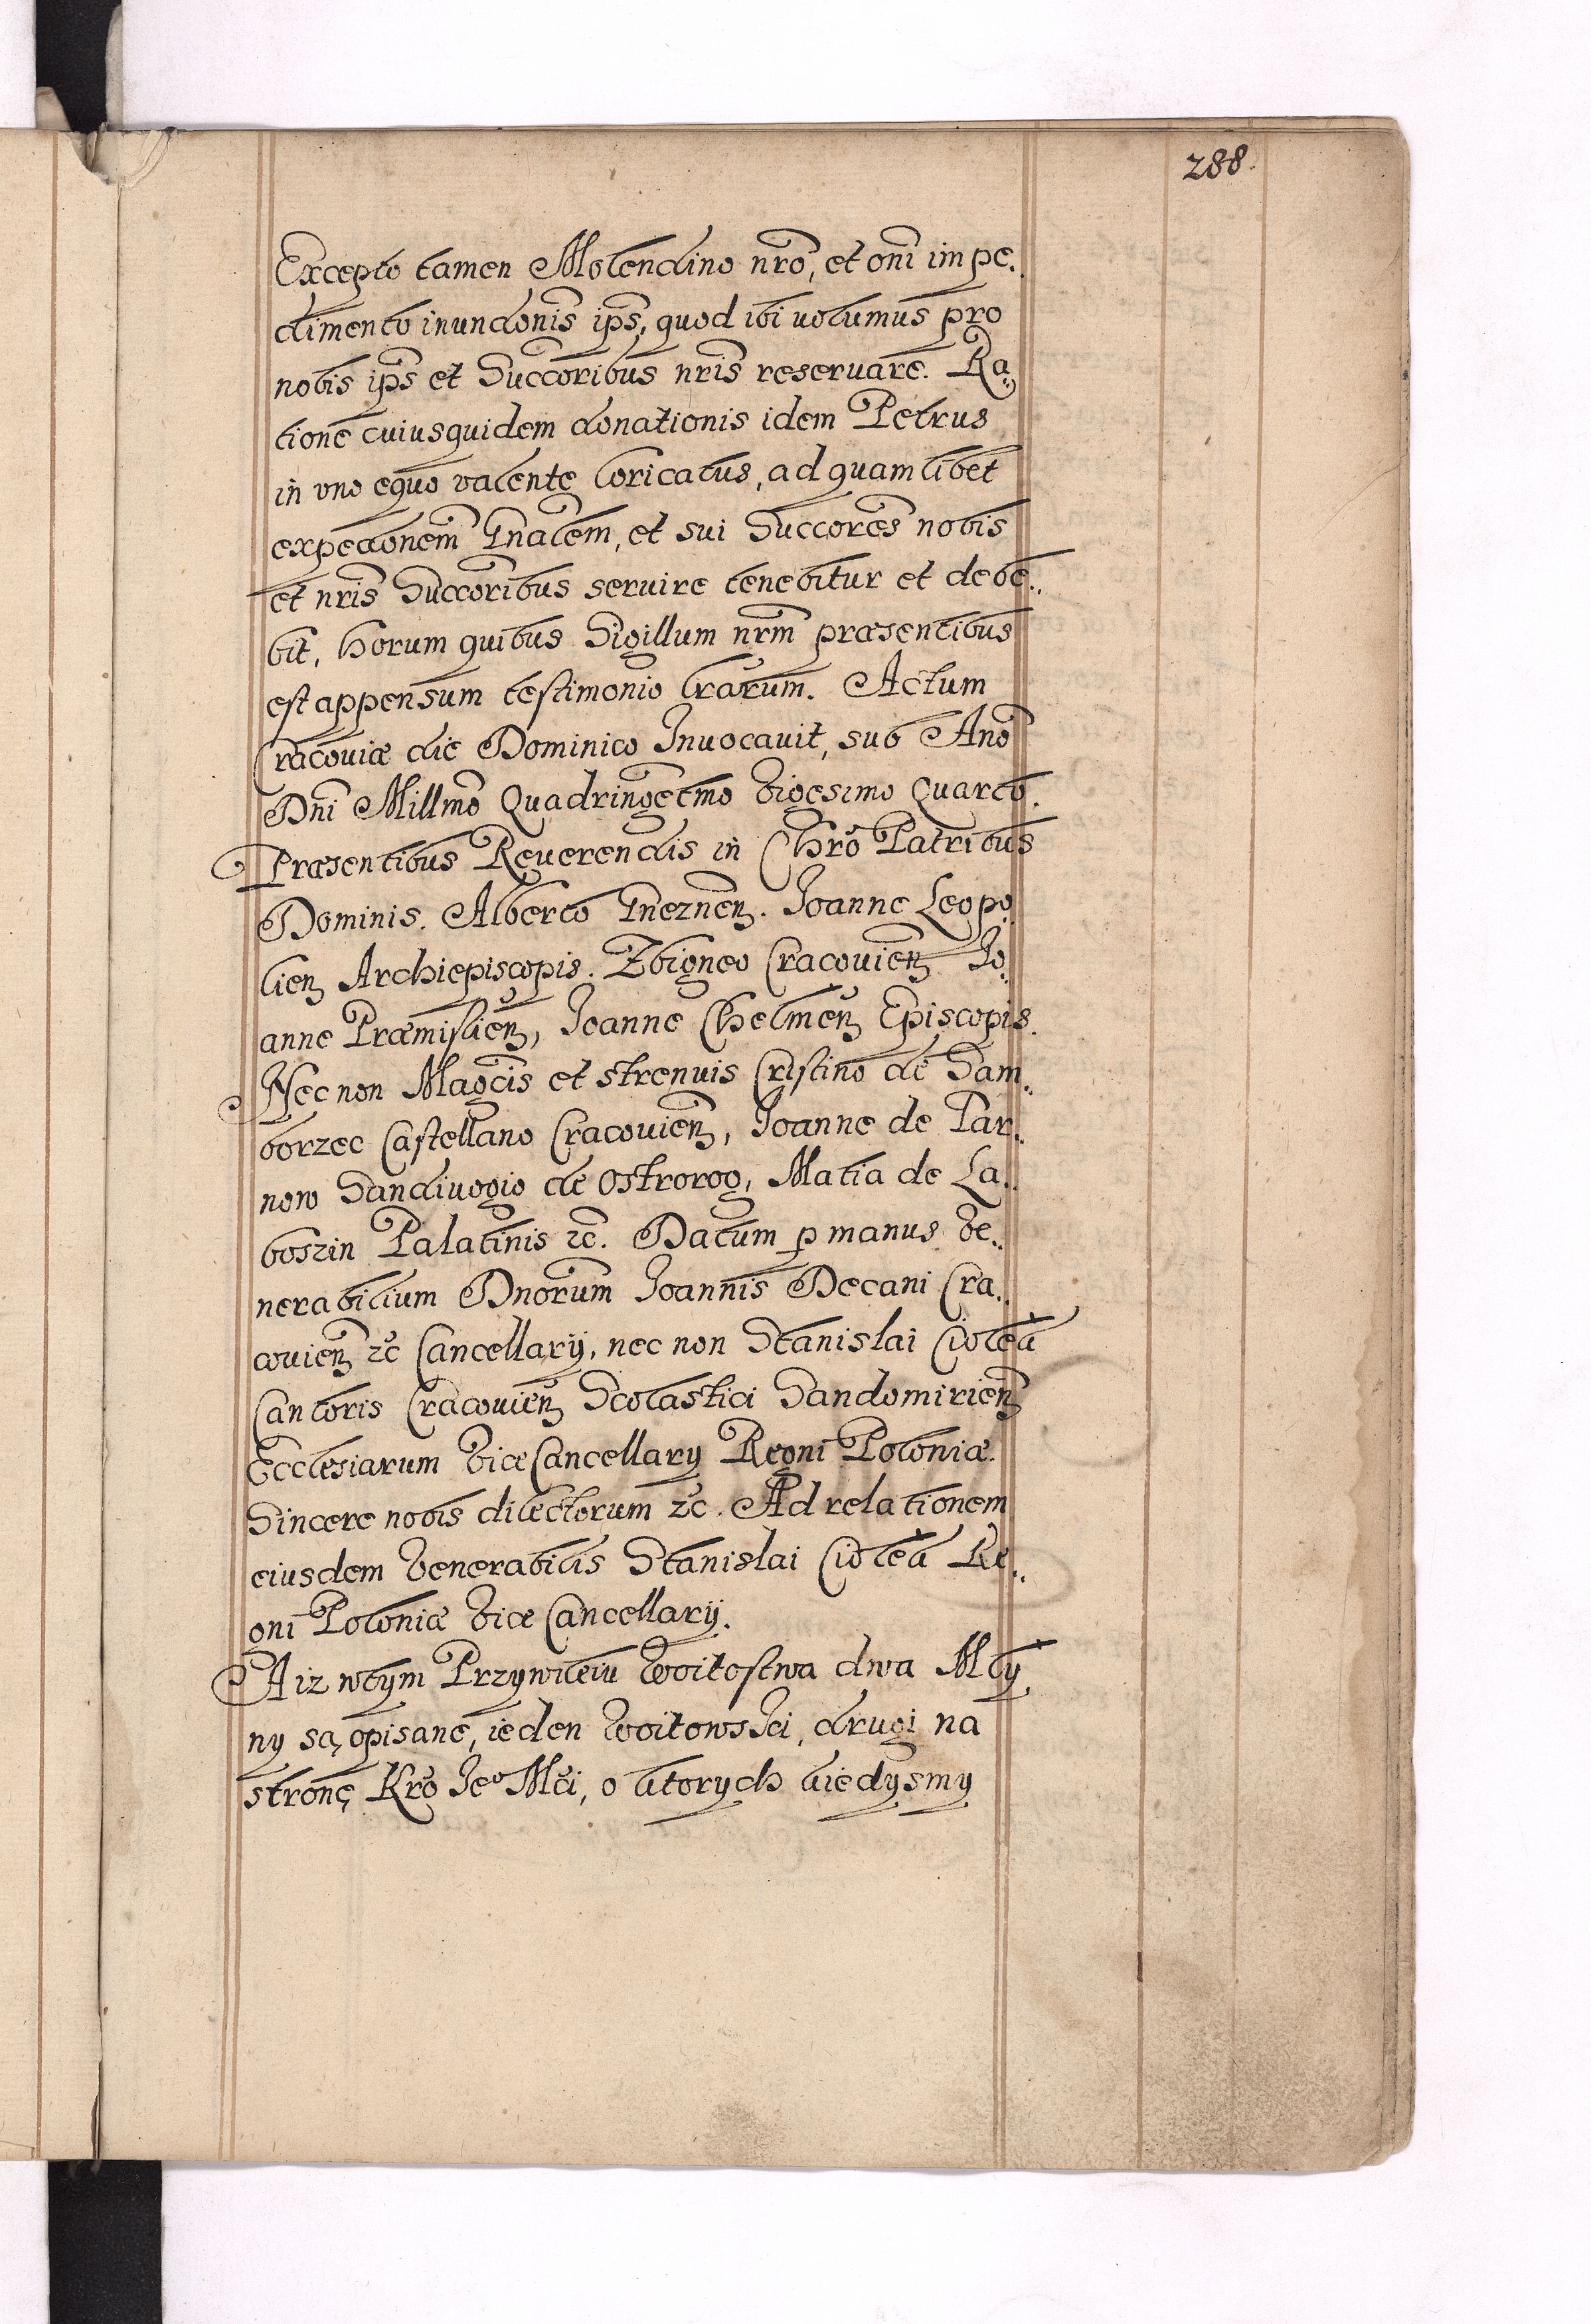 288.
Excepto tamen Molendino nrõ, et oñi impe..
dimento inundõnis ip̃s, quod ibi uolumus pro
nobis ip̃s et Succõribus nrĩs reseruare. Ra..
tione cuiusquidem donationis idem Petrus
in vno equo valente loricatus, ad quamlibet
expedõnem Gñalem, et sui Succorẽs nobis
et nrĩs Succõribus seruire tenebitur et debe..
bit, horum quibus Sigillum nrm̃ præsentibus
est appensum testimonio lrãrum. Actum
Cracouiæ die Dominico Inuocauit, sub Anõ
Dñi Millmõ Quadringẽtmo Vigesimo Quarto.
Præsentibus Reuerendis in Chrõ Patribus
Dominis. Alberto Gneznen̄. Ioanne Leopo..
lien̄ Archiepiscopis. Zbigneo Cracouien̄ Io..
anne Præmislien̄, Ioanne Chelmen̄ Episcopis.
Nec non Magcĩs et strenuis Cristino de Dam..
borzec Castellano Cracouien̄, Ioanne de Tar..
now Sandiuogio de Ostrorog, Matia de La..
boszin Palatinis ꝛc̃. Datum p manus Ve..
nerabilium Dnõrum Ioannis Decani Cra..
couien̄ ꝛc̃ Cancellarij, nec non Stanislai Ciołeḱ
Cantoris Cracouien̄ Scolastici Sandomirien̄
Ecclesiarum ViceCancellary Regni Poloniæ.
Sincere nobis dilectorum ꝛc̃. Ad relationem
eiusdem Venerabilis Stanislai Ciołek Re..
gni Poloniæ Vice Cancellarij.
A iz wtym Przywileiu Woitostwa dwa Mły
ny są opisane, ieden Woitowski, drugi na
stronę Krõ Jeº Mći, o ktorych kiedysmy